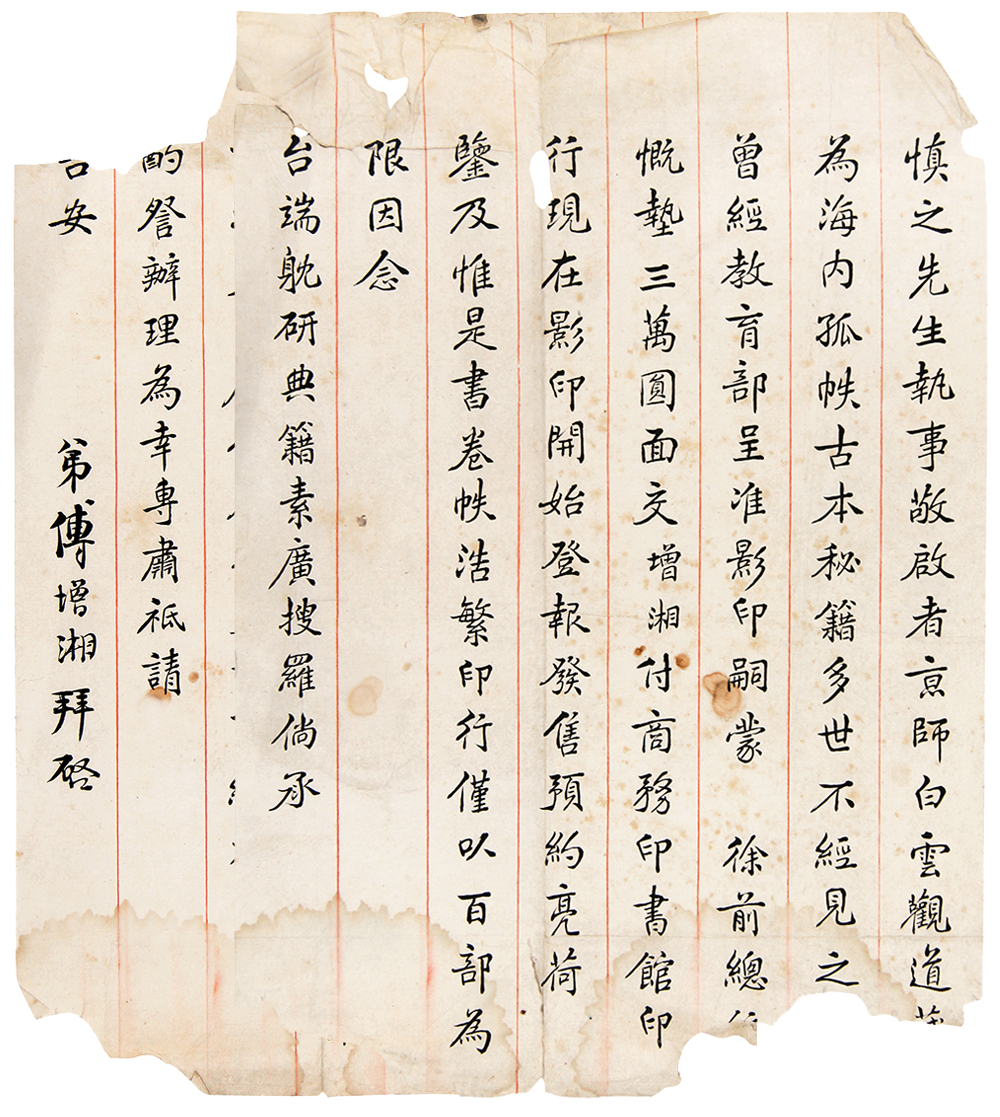 慎之先生執事敬啟者京師白雲觀道
為海內孤帙古本秘籍多世不經見之
曾經教育部呈准影印嗣蒙 徐前總
慨墊三萬圓面交增湘付商務印書館印
行現在影印開始登報發售預約亮荷
鑒及惟是書卷帙浩繁印行僅以百部為
限因念
台端躭研典籍素廣搜羅倘承
酌詧辦理為幸專肅祗請
安
弟傅增湘拜啓